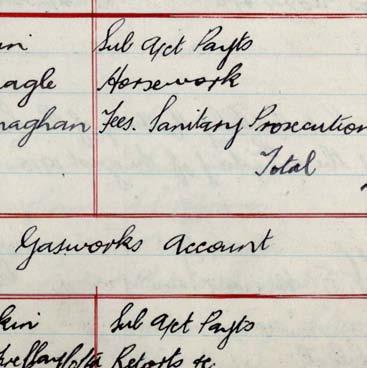 Sub Act Payts
eagle Horsework
naghan Fees. Sanitary Prosecution
Total
Gasworks Account
kin Sub Act Payts
Retorts &c